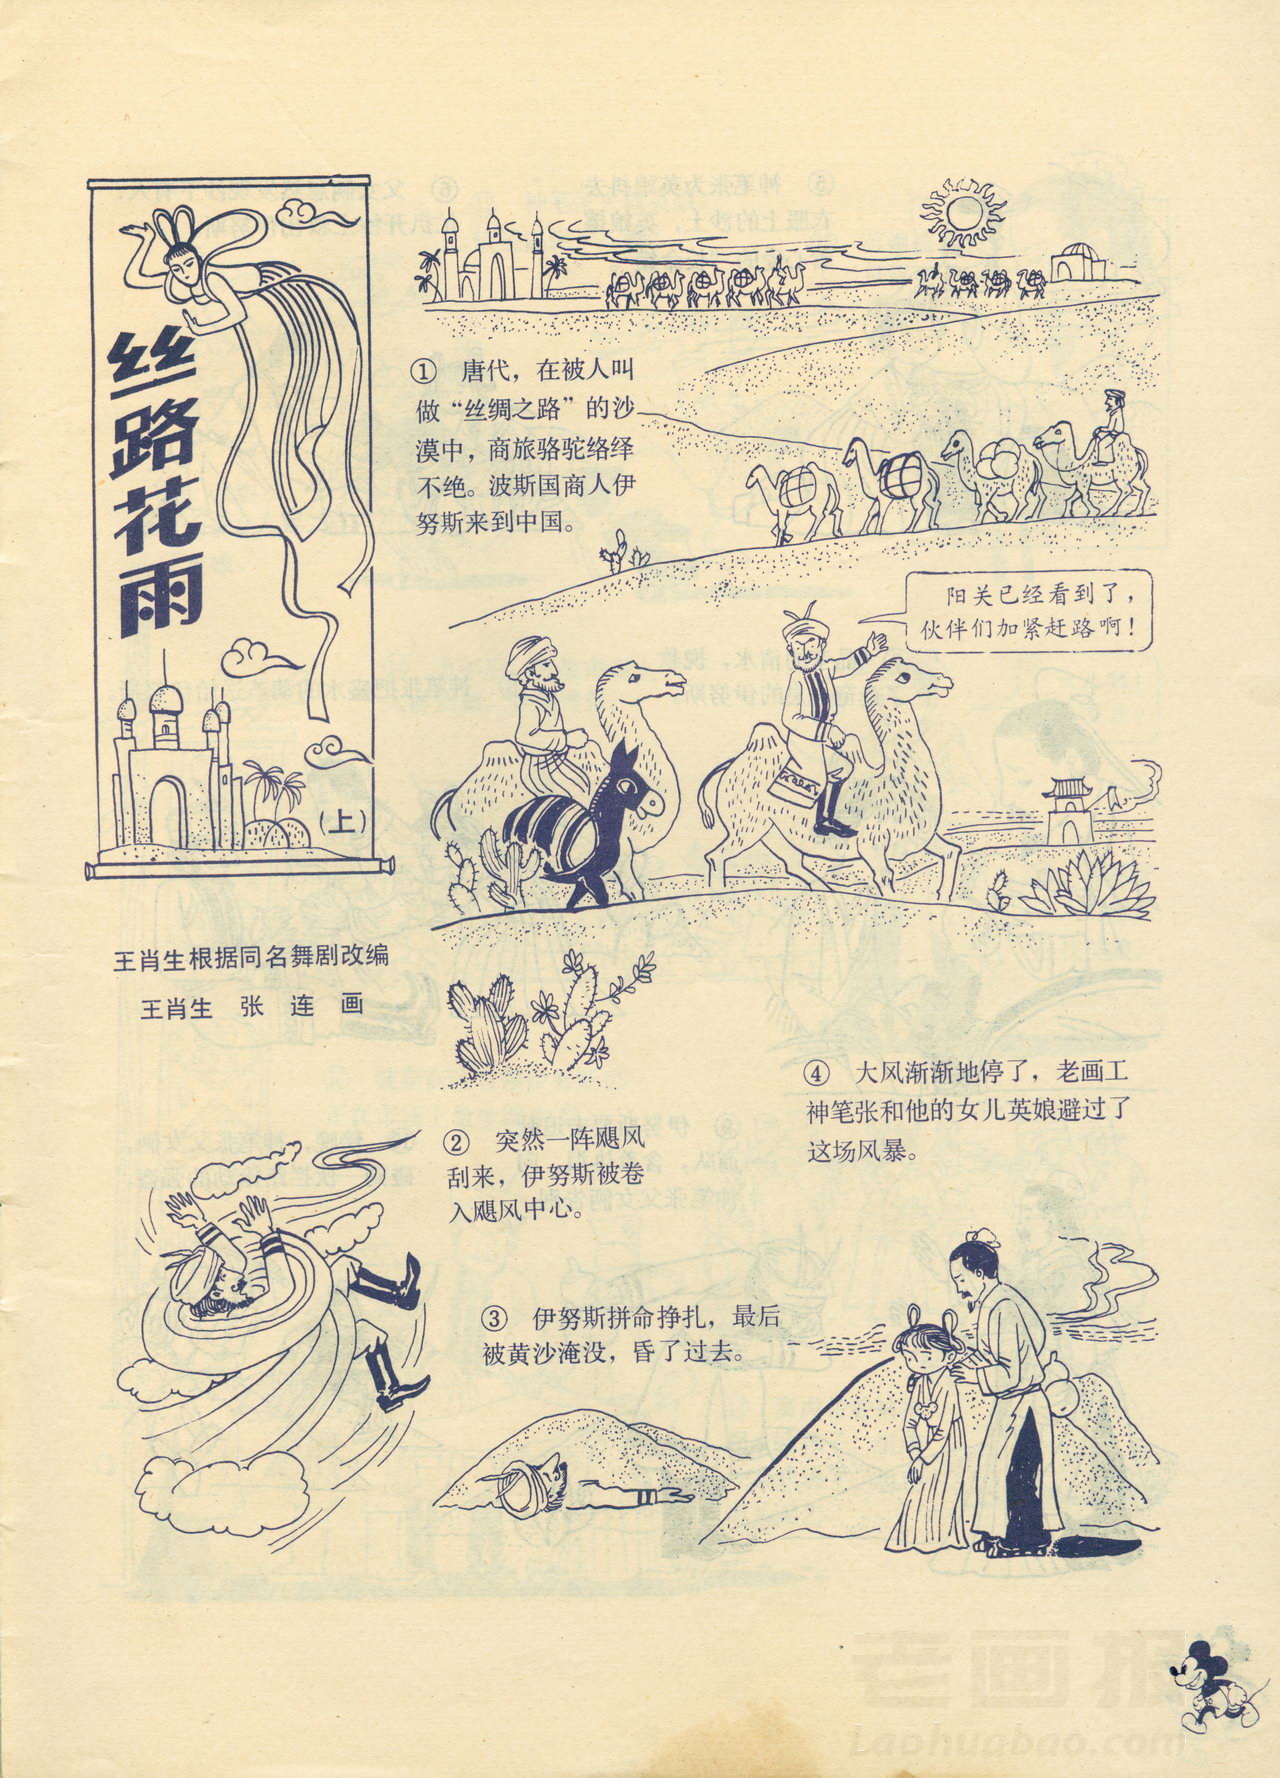 丝路花雨
（上）
王肖生根据同名舞剧改编
王肖生 张 连 画
① 唐代，在被人叫
做“丝绸之路”的沙
漠中，商旅骆驼络绎
不绝。波斯国商人伊
努斯来到中国。
阳关已经看到了，
伙伴们加紧赶路啊！
② 突然一阵飓风
刮来，伊努斯被卷
入飓风中心。
③ 伊努斯拼命挣扎，最后
被黄沙淹没，昏了过去。
④ 大风渐渐地停了，老画工
神笔张和他的女儿英娘避过了
这场风暴。
老画报
Laohuabao.com